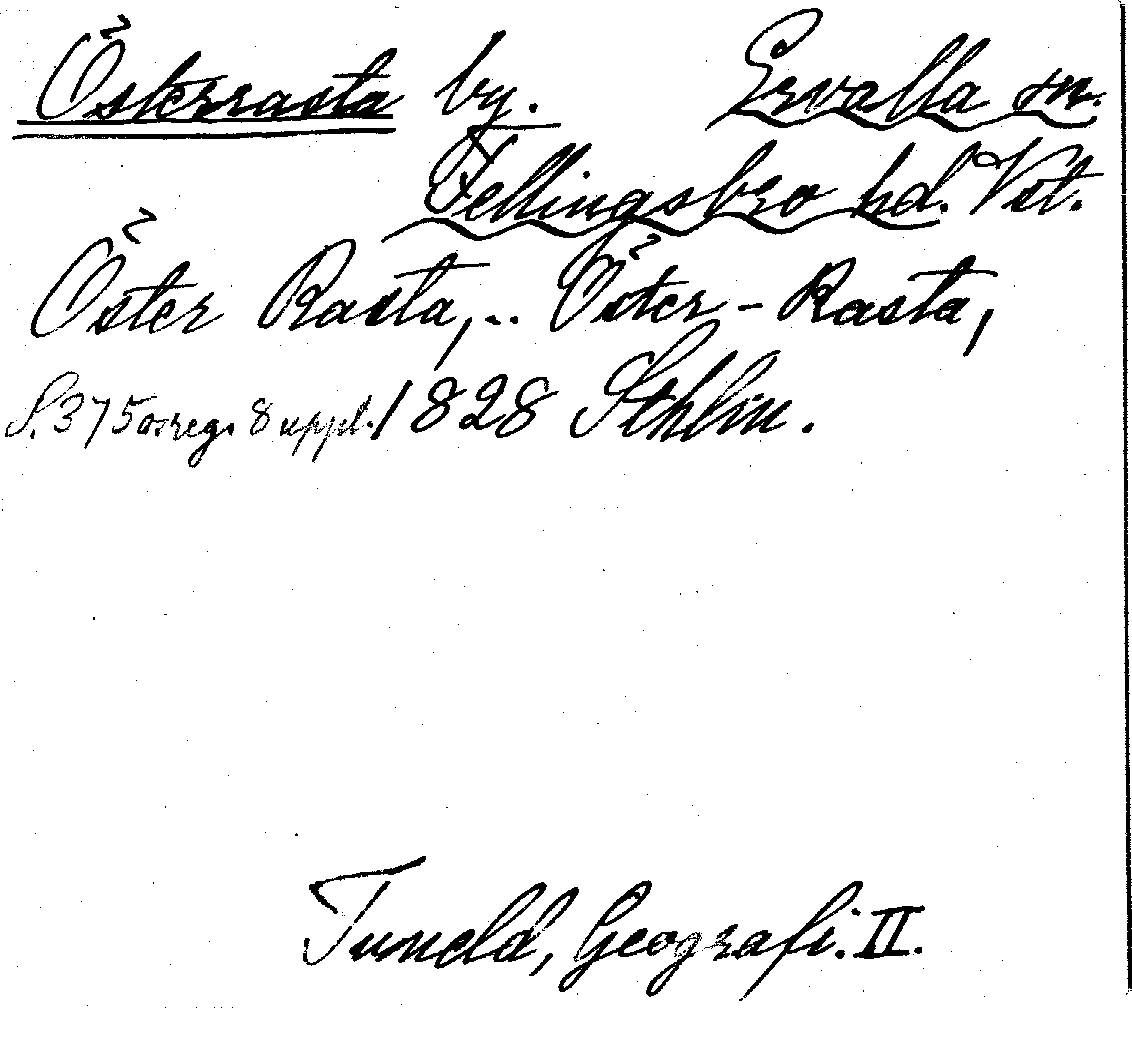 Österrasta by. Ervalla sn.
Fellingsbro hd. Vst.
Öster Rasta,.. Öster-Rasta,
S. 375 o. reg. 8 uppl. 1828 Sthlm.
Tuneld, Geografi. II.